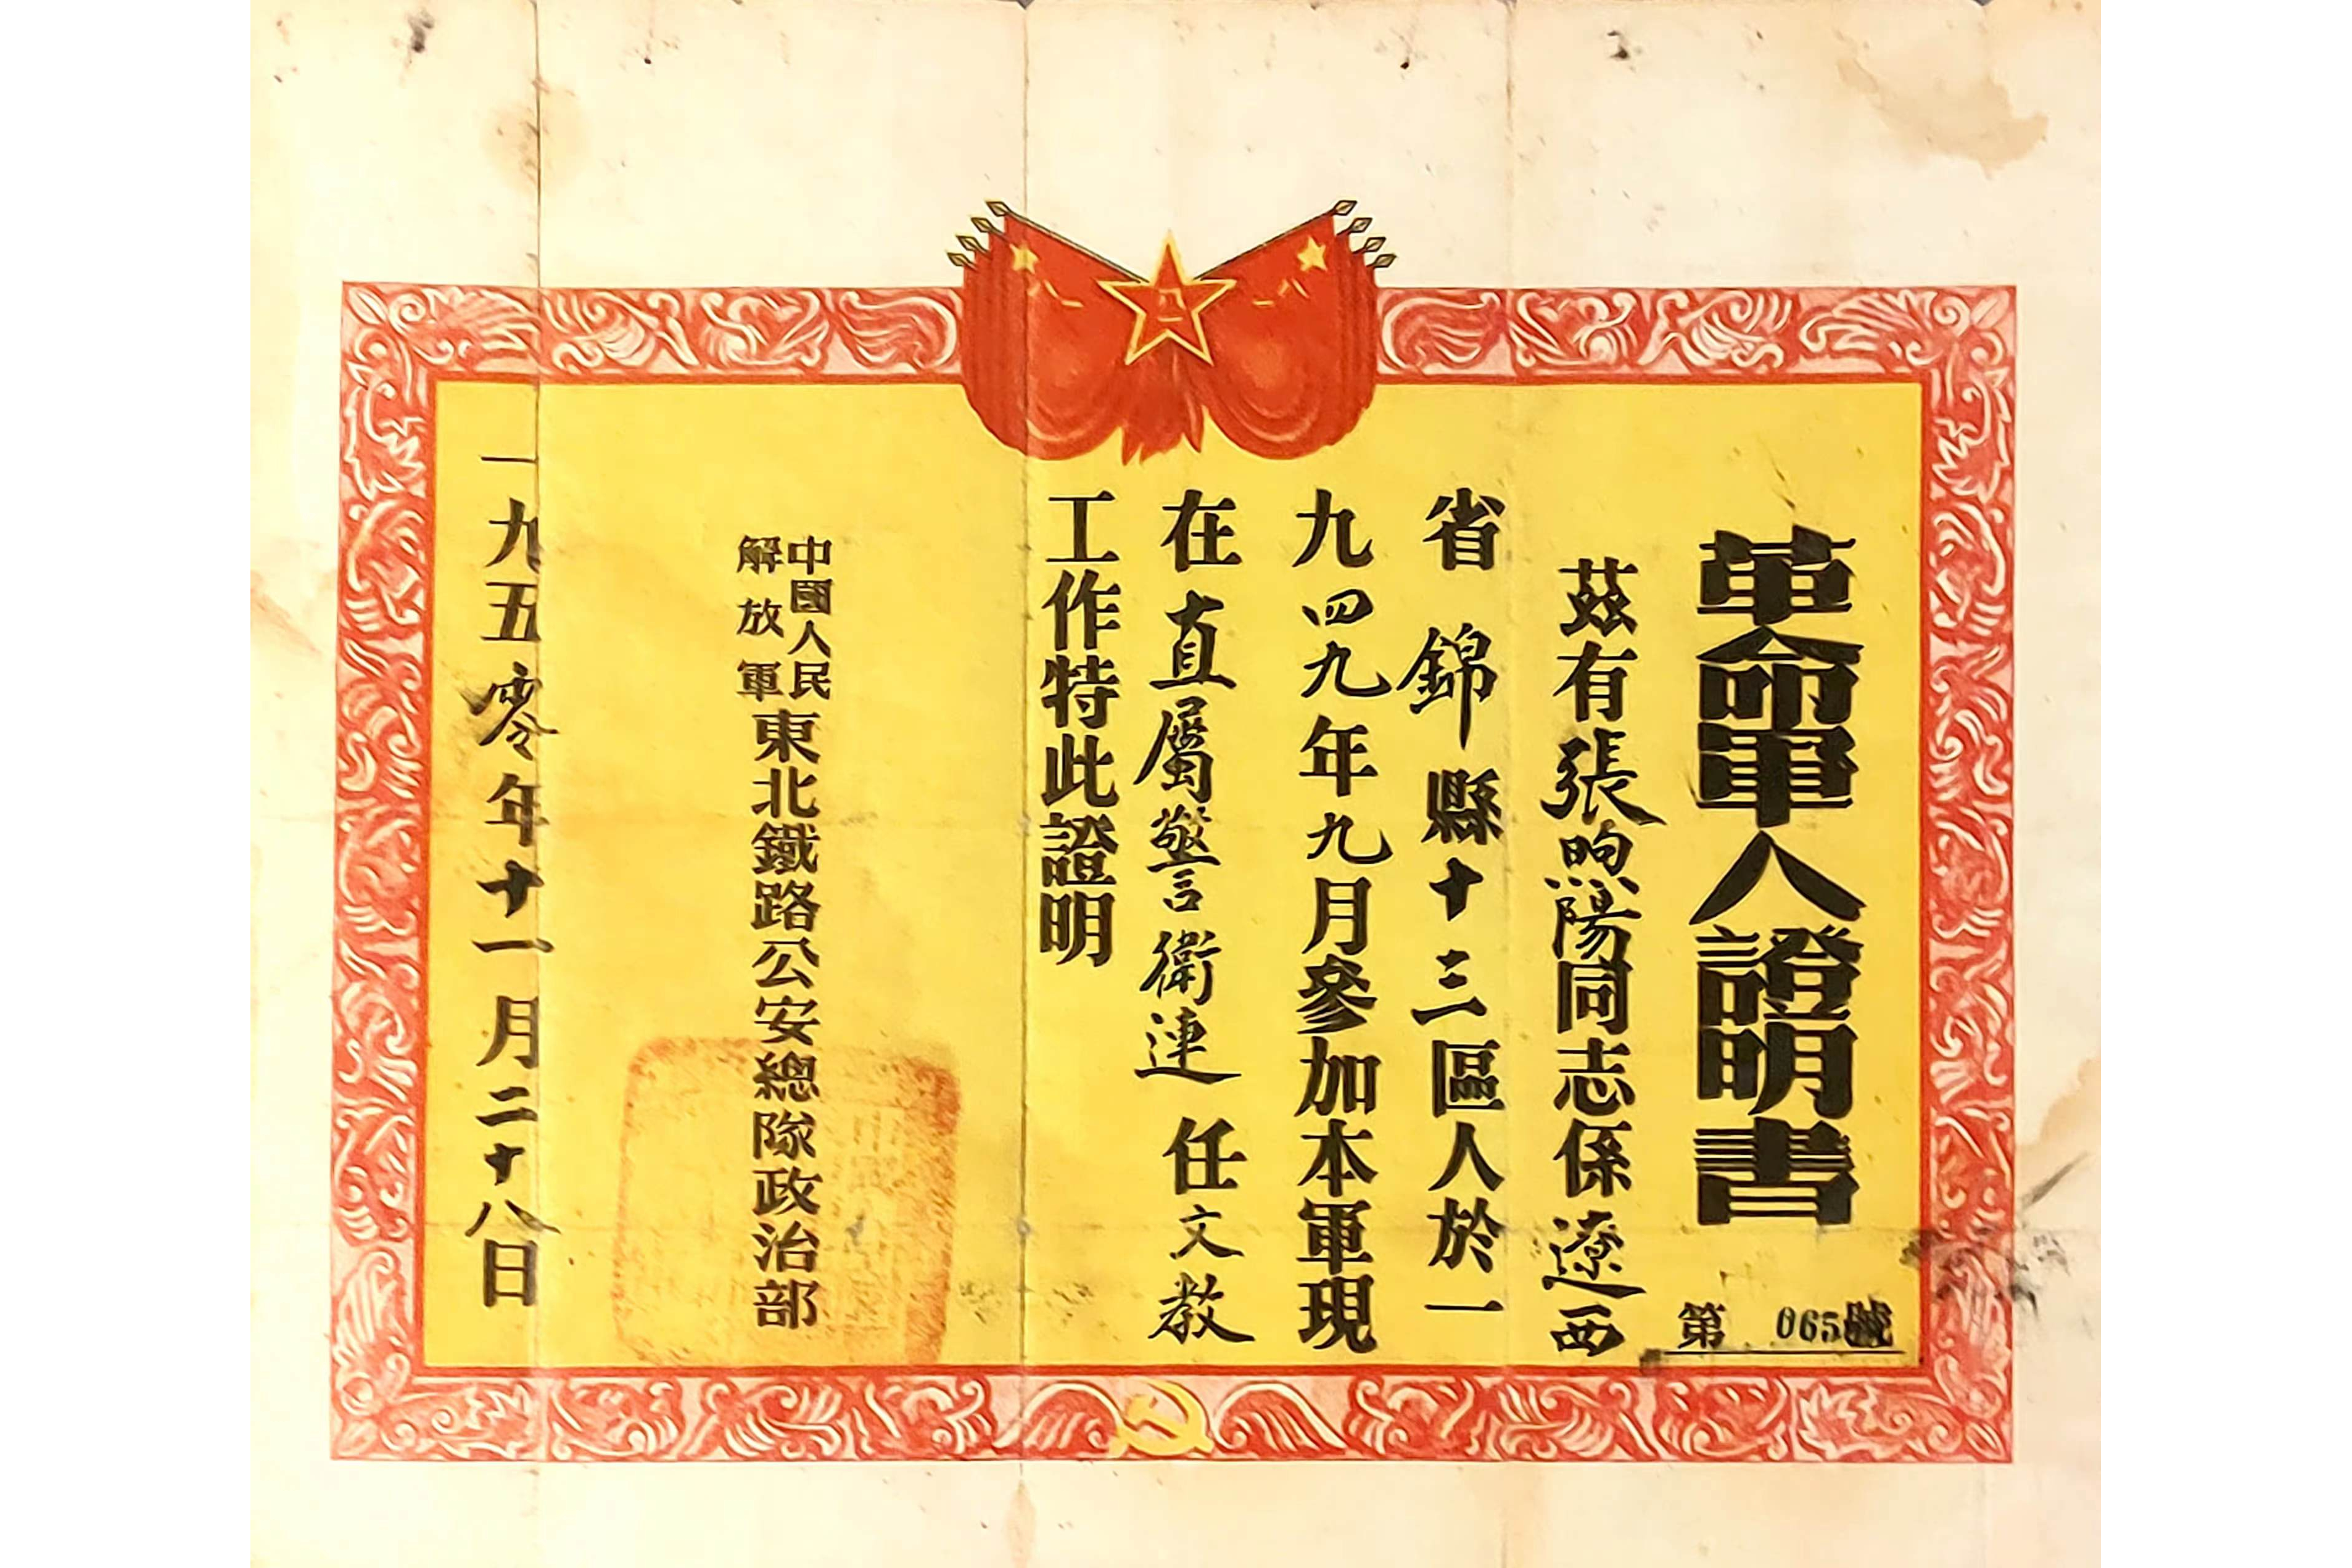 革命軍人證明書
第 065號
茲有張煦陽同志係遼西
省錦縣十三區人於一
九四九年九月參加本軍現
在直屬警衛連任文教
工作特此證明
中國人民解放軍東北鐵路公安總隊政治部
一九五零年十一月二十八日
八一
八一
一八